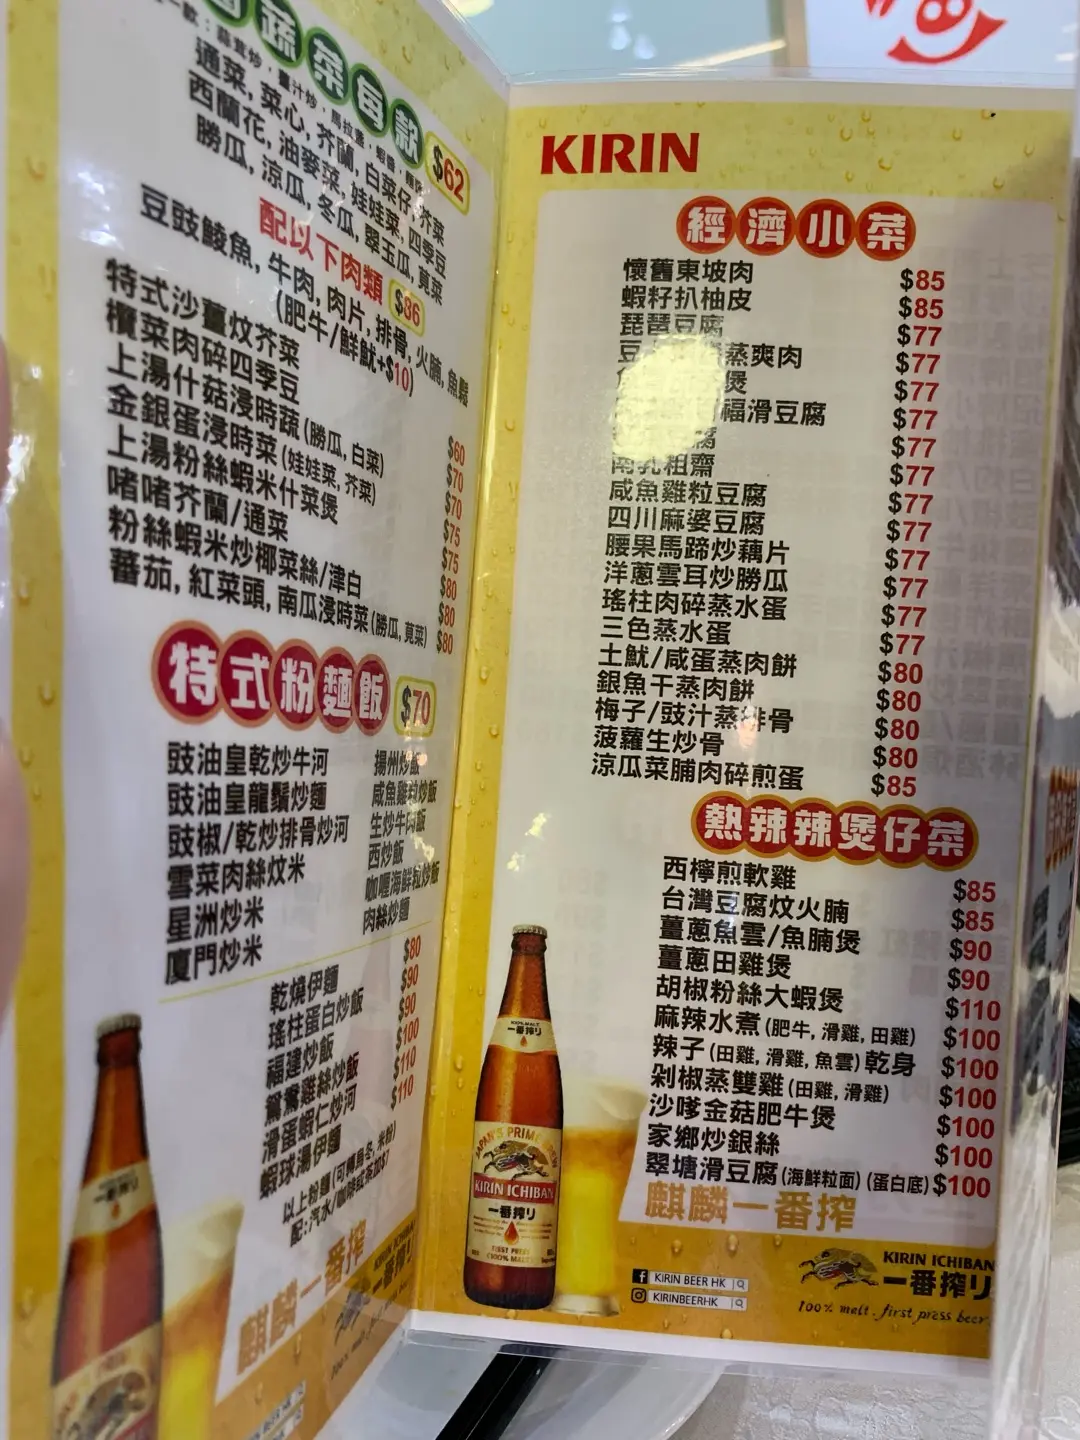 蔬菜每款 $62
通菜, 菜心, 芥蘭, 白菜仔, 芥菜
西蘭花, 油麥菜, 娃娃菜, 四季豆
勝瓜, 涼瓜, 冬瓜, 翠玉瓜, 莧菜
配以下肉類 $86
豆豉鯪魚, 牛肉, 肉片, 排骨, 火腩, 魚鬆
(肥牛/鮮魷+$10)
特式沙薑炆芥菜 $60
欖菜肉碎四季豆 $70
上湯什菇浸時蔬 (勝瓜, 白菜) $70
金銀蛋浸時菜 (娃娃菜, 芥菜) $75
上湯粉絲蝦米什菜煲 $75
啫啫芥蘭/通菜 $80
粉絲蝦米炒椰菜絲/津白 $80
蕃茄, 紅菜頭, 南瓜浸時菜 (勝瓜, 莧菜) $80
特式粉麵飯 $70
豉油皇乾炒牛河 揚州炒飯
豉油皇龍鬚炒麵 咸魚雞粒炒飯
豉椒/乾炒排骨炒河 生炒牛肉飯
雪菜肉絲炆米 西炒飯
星洲炒米 咖喱海鮮粒炒飯
廈門炒米 肉絲炒麵
乾燒伊麵 $80
瑤柱蛋白炒飯 $90
福建炒飯 $90
鴛鴦雞絲炒飯 $100
滑蛋蝦仁炒河 $110
蝦球湯伊麵 $110
以上粉麵(可轉烏冬, 米粉)
配:汽水/咖啡紅茶加$7
麒麟一番搾
KIRIN
經濟小菜
懷舊東坡肉 $85
蝦籽扒柚皮 $85
琵琶豆腐 $77
蒸爽肉 $77
煲 $77
福滑豆腐 $77
腐 $77
南乳粗齋 $77
咸魚雞粒豆腐 $77
四川麻婆豆腐 $77
腰果馬蹄炒藕片 $77
洋蔥雲耳炒勝瓜 $77
瑤柱肉碎蒸水蛋 $77
三色蒸水蛋 $77
土魷/咸蛋蒸肉餅 $80
銀魚干蒸肉餅 $80
梅子/豉汁蒸排骨 $80
菠蘿生炒骨 $80
涼瓜菜脯肉碎煎蛋 $85
熱辣辣煲仔菜
西檸煎軟雞 $85
台灣豆腐炆火腩 $85
薑蔥魚雲/魚腩煲 $90
薑蔥田雞煲 $90
胡椒粉絲大蝦煲 $110
麻辣水煮 (肥牛, 滑雞, 田雞) $100
辣子 (田雞, 滑雞, 魚雲) 乾身 $100
剁椒蒸雙雞 (田雞, 滑雞) $100
沙嗲金菇肥牛煲 $100
家鄉炒銀絲 $100
翠塘滑豆腐 (海鮮粒面) (蛋白底) $100
麒麟一番搾
一番搾り
JAPAN'S PRIME
KIRIN ICHIBAN
一番搾り
FIRST PRESS
100% MALT
KIRIN BEER HK
KIRINBEERHK
KIRIN ICHIBAN
一番搾り
100% malt. first press beer.